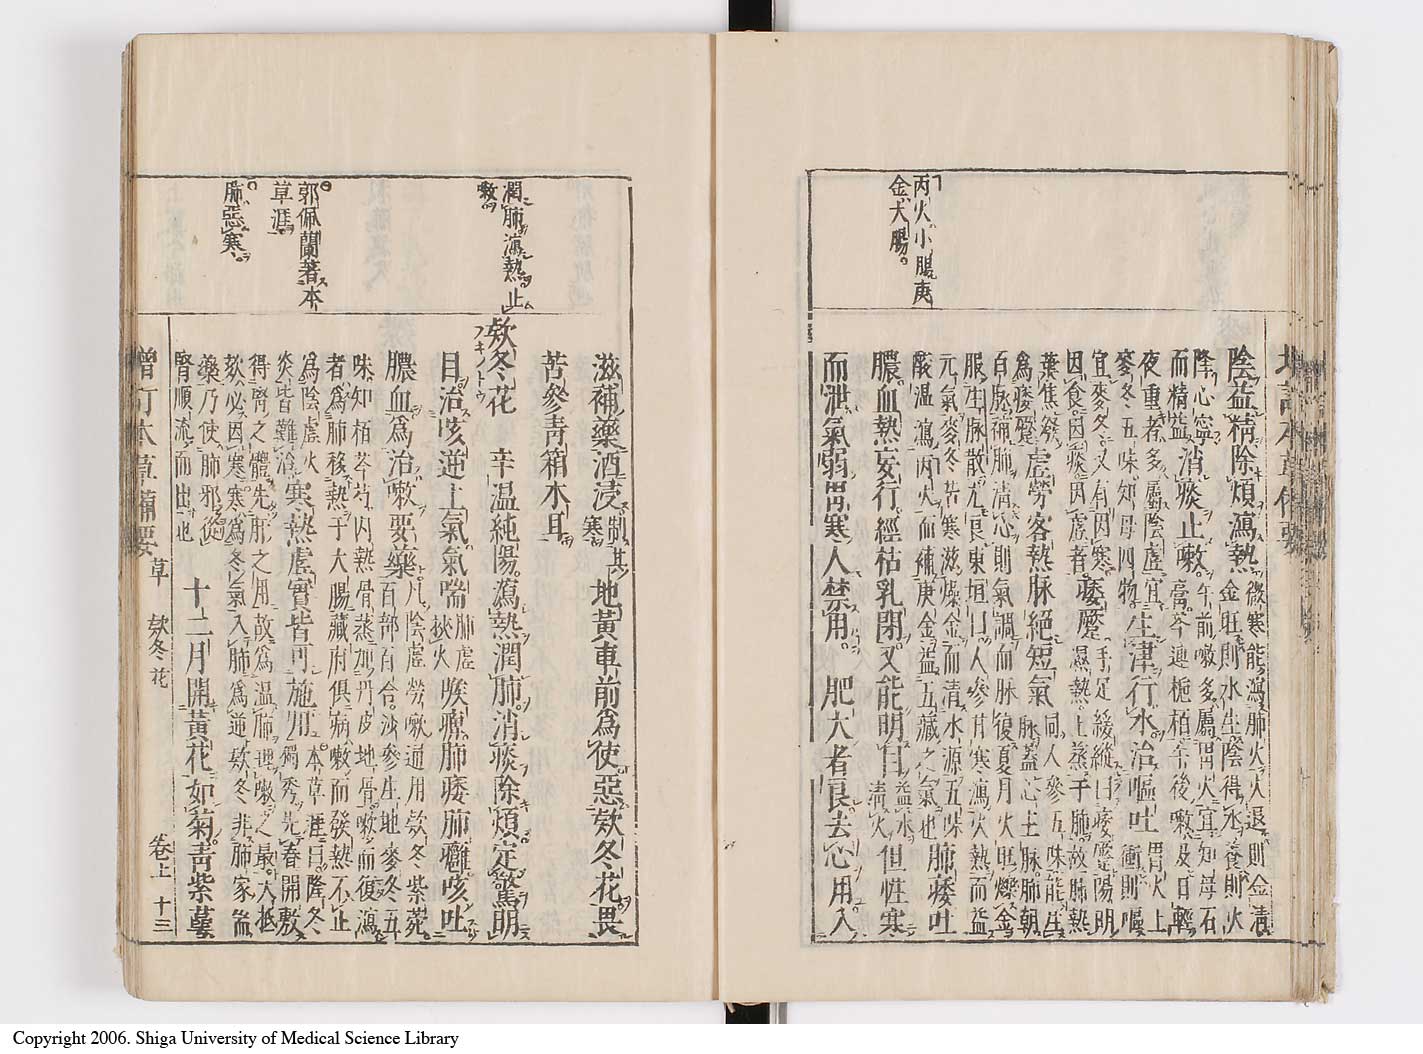 丙火小腸庚
金大腸。
陰益精除煩瀉熱微寒能瀉肺火火退則金清
金旺則水生陰得水養則火
降心寧
而精益消痰止嗽午前嗽多屬胃火宜知母石
膏芩連梔栢午後嗽及日輕
夜重者多屬陰虛宜
麥冬五味知母四物生津行水治嘔吐胃火上
衝則嘔
宜麥冬又有因寒
因食因痰因虛者痿蹷手足緩縱曰痿蹷陽明
濕熱上蒸于肺故肺熱
葉焦發
爲痿蹷虛勞客熱脉絕短氣同人參五味能生
脉蓋心主脉肺朝
百脉補肺淸心則氣調而脉復夏月火旺爍金
服生脉散尤良東垣曰人參甘寒瀉火熱而益
元氣麥冬苦寒滋燥金而清水源五味
酸溫瀉丙火而補庚金益五藏之氣也肺痿吐
膿血熱妄行經枯乳閉又能明目益水
淸火但性寒
而泄氣弱胃寒人禁用。肥大者良去心用入
滋補藥酒浸制其
寒地黃車前爲使惡欵冬花畏
苦參靑箱木耳
潤肺瀉熱止
嗽
欵冬花フキノトウ 辛溫純陽瀉熱潤肺消痰除煩定驚明
目治咳逆上氣氣喘肺虛
挾火喉痺肺痿肺癰咳吐
膿血爲治嗽要藥凡陰虛勞嗽通用欵冬紫菀
百部百合沙參生地麥冬五
味知栢芩芍內熱骨蒸加丹皮地骨嗽而復瀉
者爲肺移熱于大腸藏府俱病嗽而發熱不止
爲陰虛火
炎皆難治寒熱虛實皆可施用本草涯曰隆冬
獨秀先春開敷
得腎之體先肝之用故爲溫肺理嗽之最大抵
欬必因寒寒爲冬氣入肺爲逆欵冬非肺家耑
藥乃使肺邪從
腎順流而出也十二月開黃花如菊靑紫蕚
郭佩蘭著本
草涯
肺惡寒
增訂本草備要 草 欵冬花 卷上 十三
Copyright 2006. Shiga University of Medical Science Library